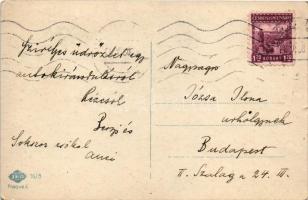 Szívélyes üdvözlet egy
autokirándulásról
Bözsi és
Sokszor csókol
Anci
Nagysága
Józsa Ilona
úrhölgynek
Budapest
II. Szalag u 24. III.
ČESKOSLOVENSKO
1.20 KORUNY 1.20